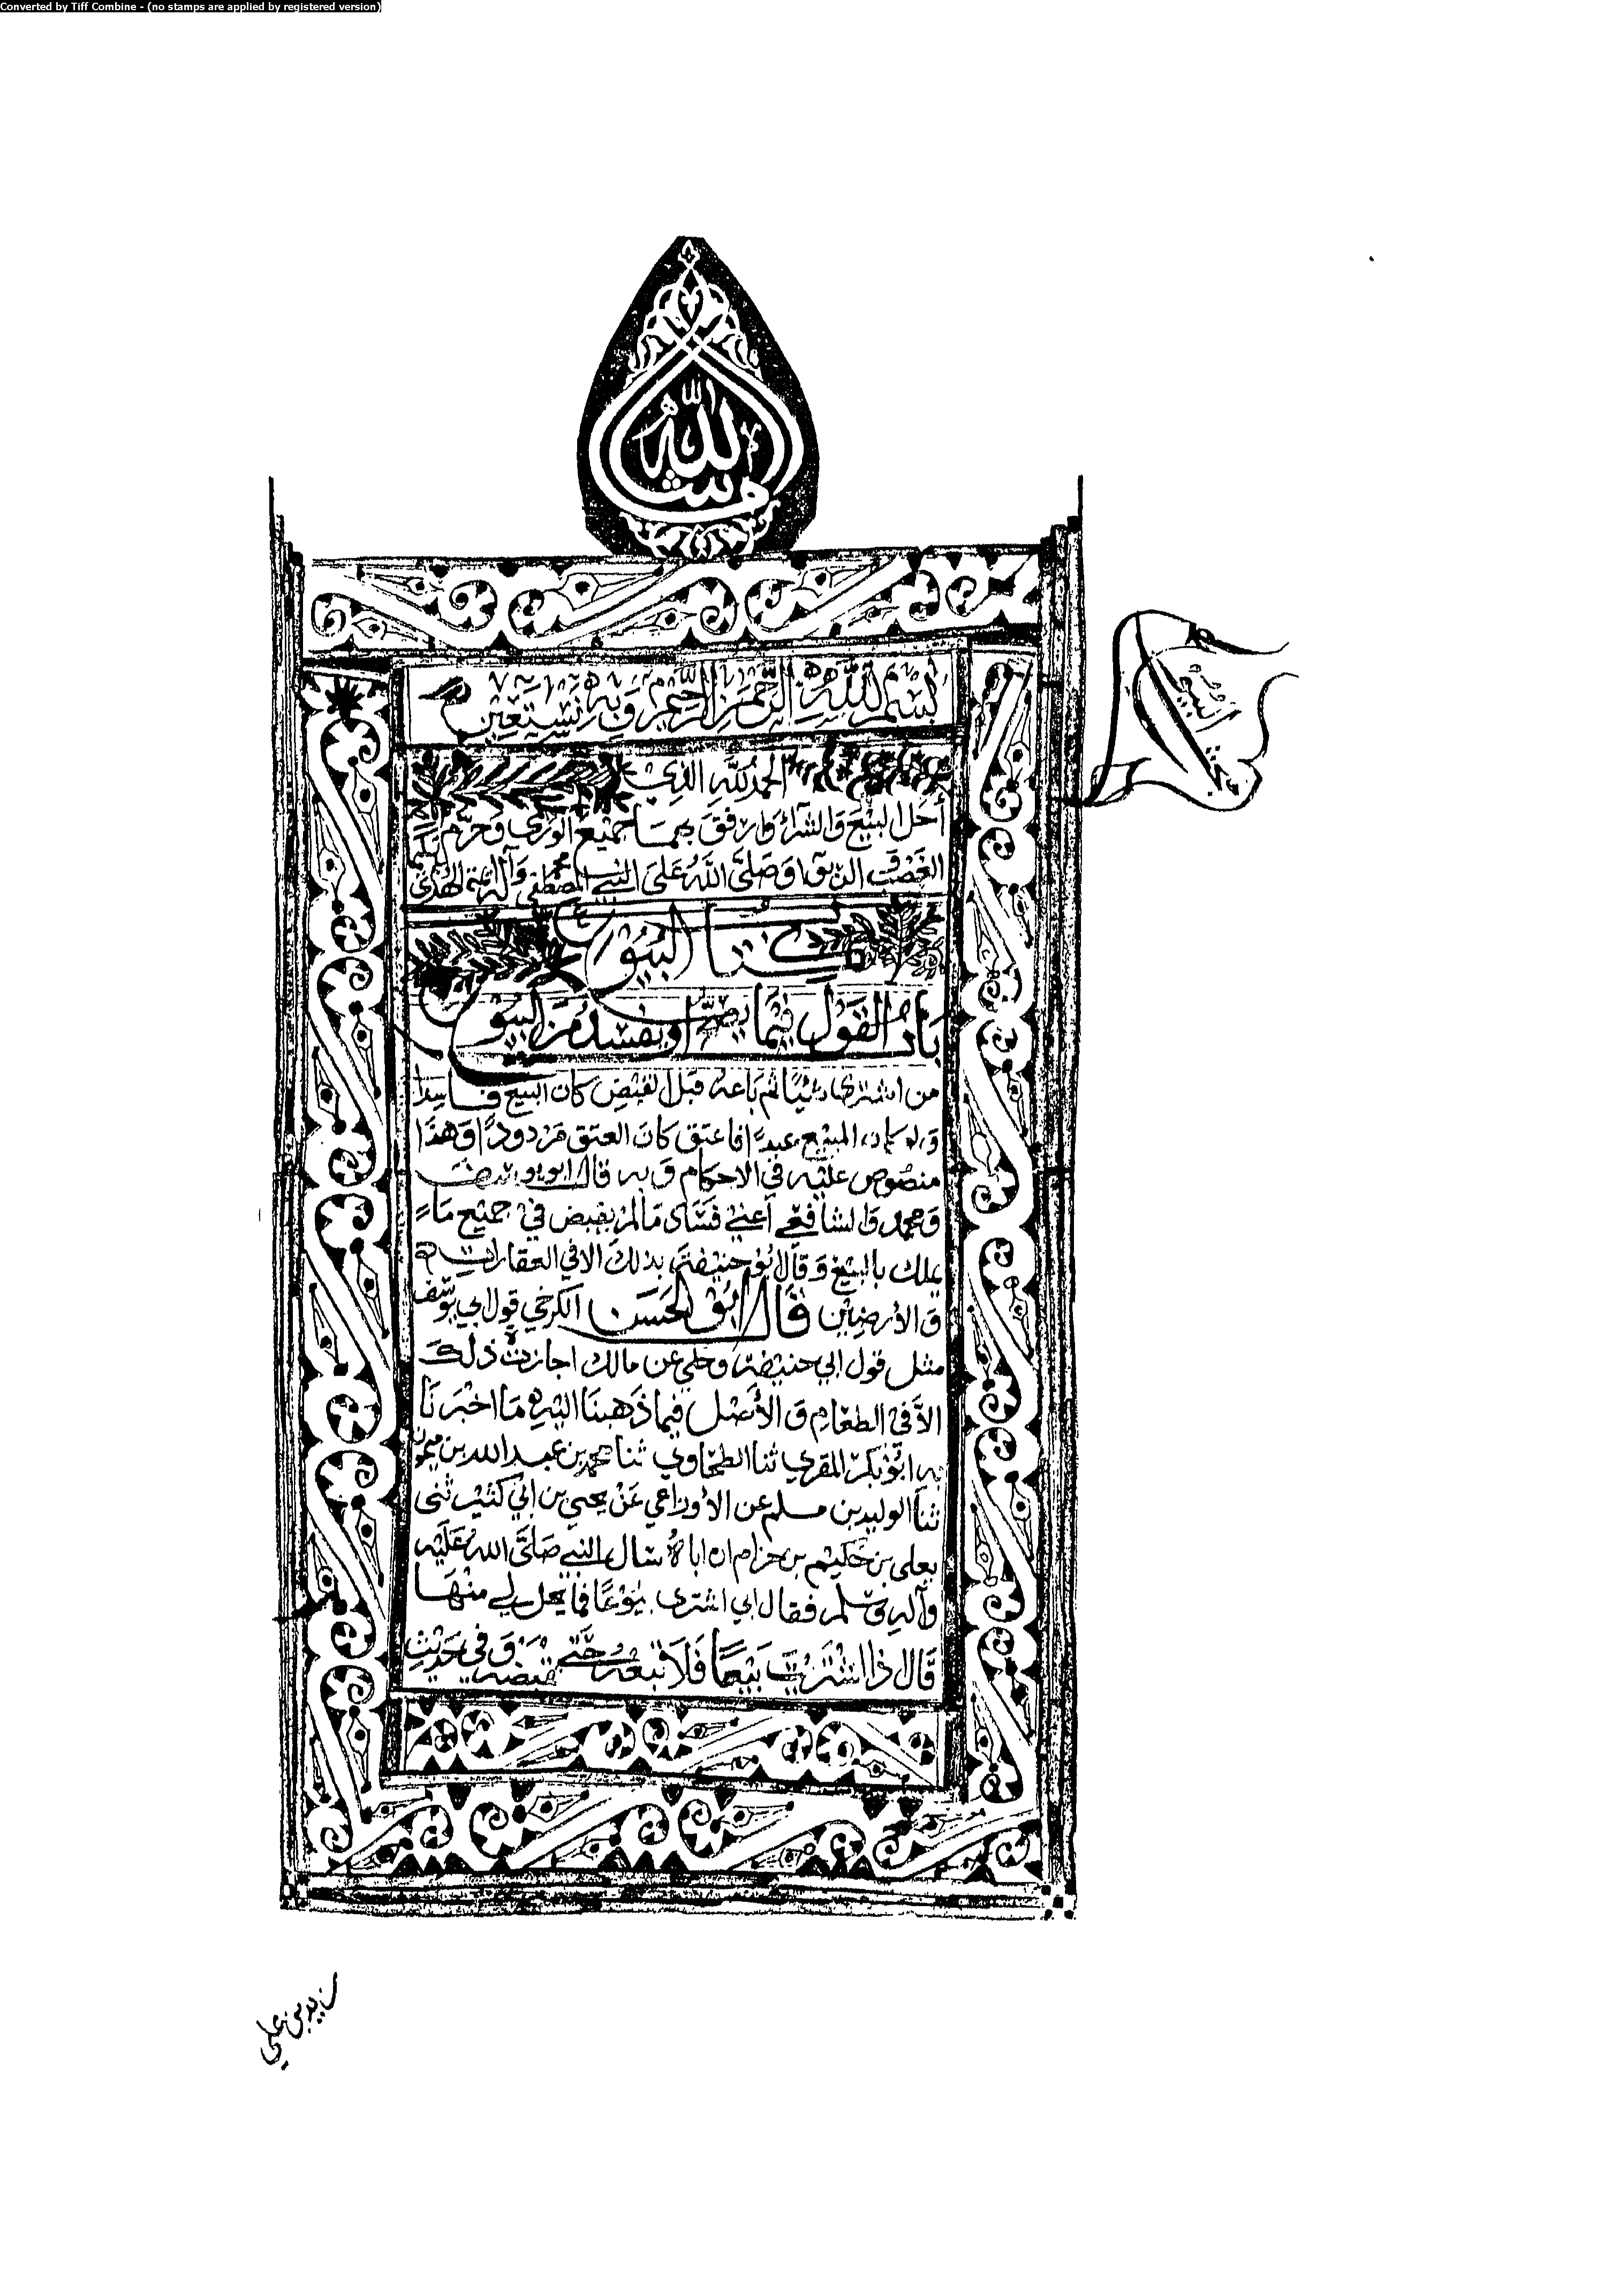 Converted by Tiff Combine - (no stamps are applied by registered version)
ما شاء الله
بسم الله الرحمن الرحيم وبه نستعين
الحمد لله الذي
أحل البيع والشراء وارفق بهما جميع الورى وحرم
الغصب الربا وصلى الله على النبي محمد المصطفى وآله أئمة الهدى
كتاب البيوع
باب القول فيما يصح أو يفسد من البيوع
من اشترى شيئا ثم باعه قبل القبض كان البيع فاسدا
ولو كان المبيع عبدا فاعتق كان العتق مردودا وهذا
منصوص عليه في الاحكام وبه قال ابو يوسف
ومحمد والشافعي أعني فساد ما لم يقبض في جميع ما
يملك بالبيع وقال ابو حنيفة بذلك الا في العقارات
والأرضين قال ابو الحسن الكرخي قول ابي يوسف
مثل قول ابي حنيفة وحكي عن مالك اجازة ذلك
الا في الطعام والأصل فيما ذهبنا اليه ما اخبرنا
به ابو بكر المقري ثنا الطحاوي ثنا محمد بن عبد الله بن ميمون
ثنا الوليد بن مسلم عن الأوزاعي عن يحيى بن ابي كثير ثنى
يعلى بن حكيم بن حزام ان اباه سال النبي صلى الله عليه
وآله وسلم فقال اني اشترى بيوعا فما يحل لي منها
قال اذا اشتريت بيعا فلا تبعه حتى تقبضه وفي حديث
زيد بن علي